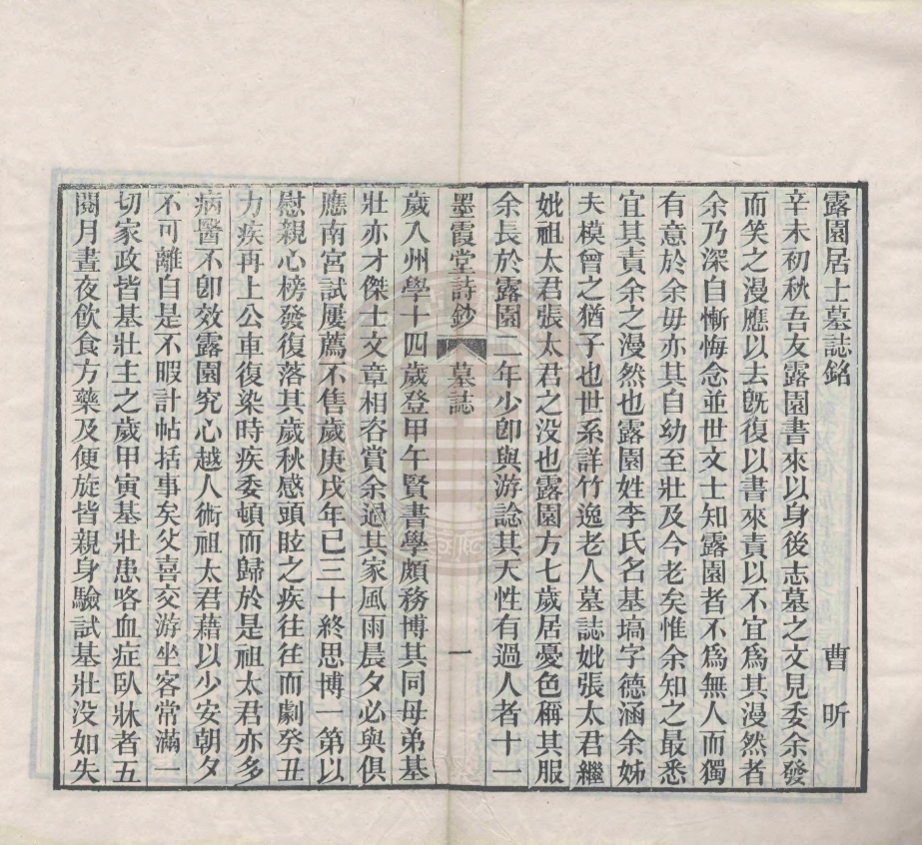 露園居士墓誌銘
曹昕
辛未初秋吾友露園書來以身後志墓之文見委余發
而笑之漫應以去旣復以書來責以不宜爲其漫然者
余乃深自慚悔念並世文士知露園者不爲無人而獨
有意於余毋亦其自幼至壯及今老矣惟余知之最悉
宜其責余之漫然也露園姓李氏名基塙字德涵余姊
夫模曾之猶子也世系詳竹逸老人墓誌妣張太君繼
妣祖太君張太君之没也露園方七歲居憂色稱其服
余長於露園二年少卽與游諗其天性有過人者十一
墨霞堂詩鈔
墓誌
一
歲入州學十四歲登甲午賢書學頗務博其同母弟基
壯亦才傑士文章相咨賞余過其家風雨晨夕必與俱
應南宮試屢薦不售歲庚戌年已三十終思博一第以
慰親心榜發復落其歲秋感頭眩之疾往往而劇癸丑
力疾再上公車復染時疾委頓而歸於是祖太君亦多
病醫不卽效露園究心越人術祖太君藉以少安朝夕
不可離自是不暇計帖括事矣父喜交游坐客常滿一
切家政皆基壯主之歲甲寅基壯患咯血症臥牀者五
閱月晝夜飲食方藥及便旋皆親身驗試基壯没如失